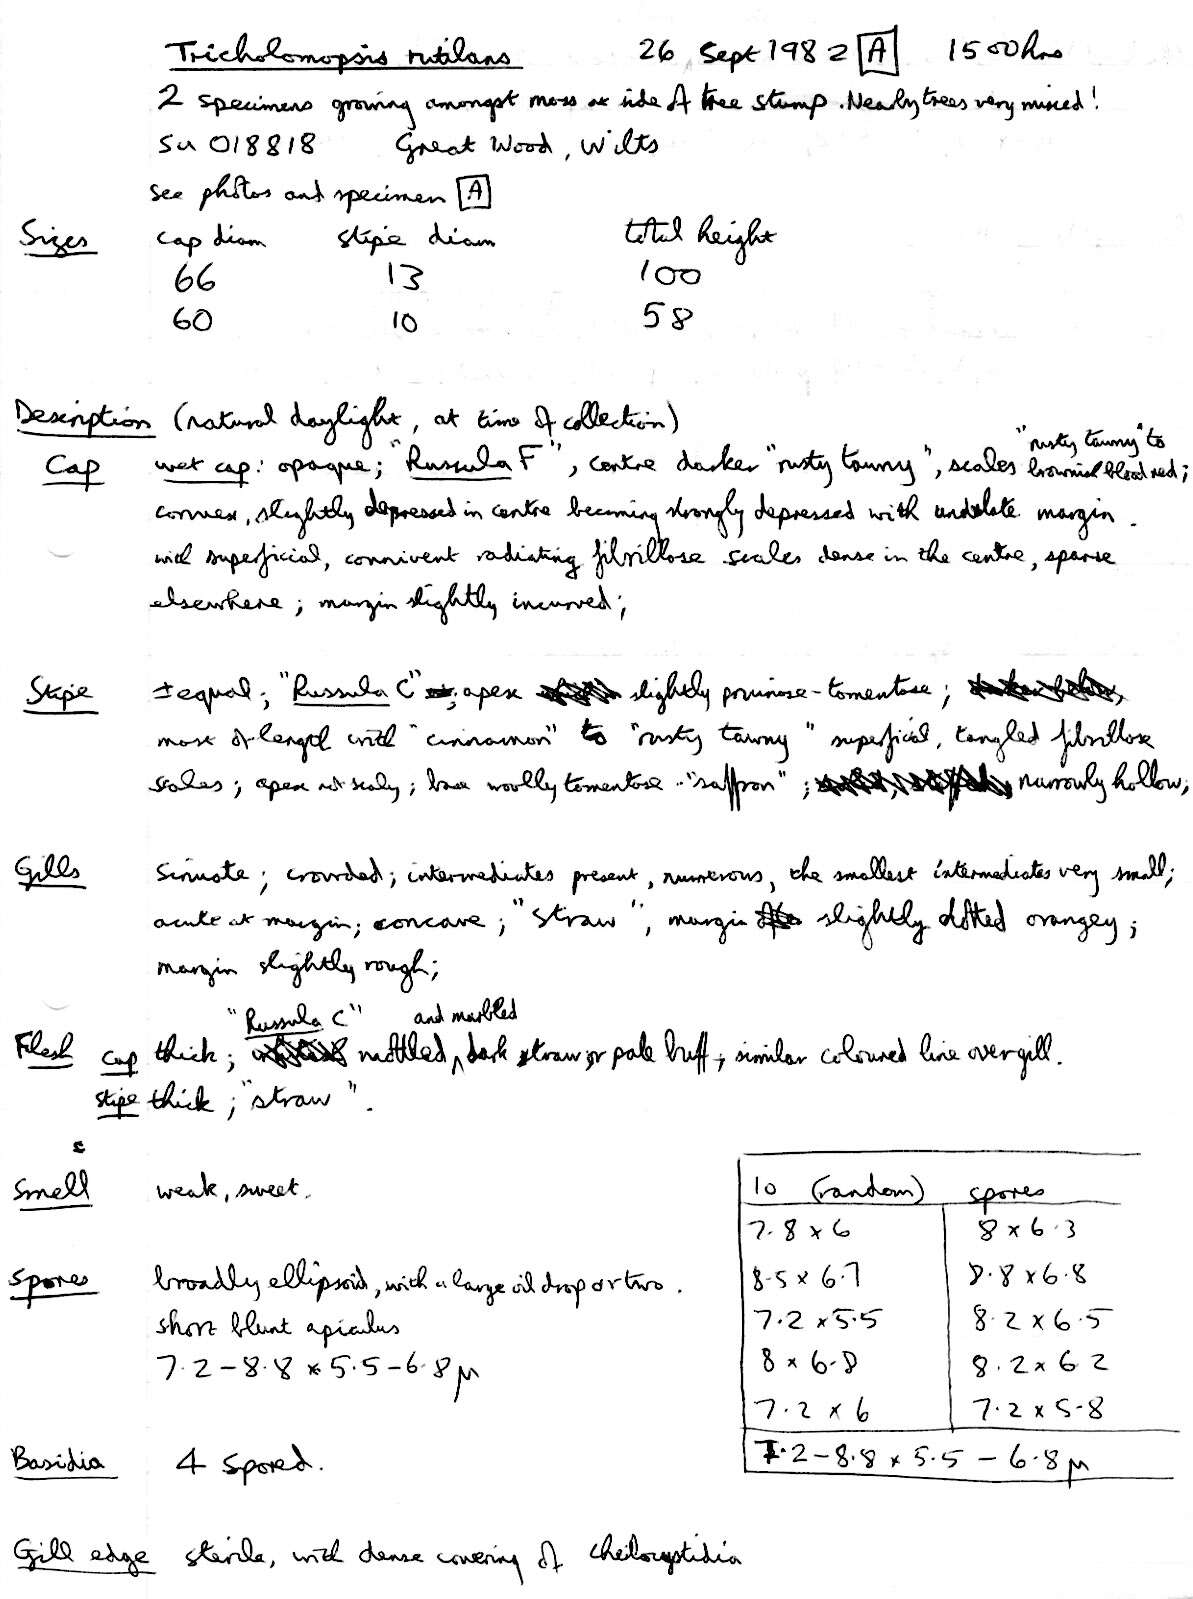 Tricholomopsis rutilans 26 Sept 1982 A 1500hrs
2 specimens growing amongst moss at side of tree stump. Nearby trees very mixed!
SU 018818 Great Wood, Wilts
see photos and specimen A
Sizes cap diam stipe diam total height
66 13 100
60 10 58
Description (natural daylight, at time of collection)
"rusty tawny" to
Cap wet cap: opaque; "Russula F", centre darker "rusty tawny", scales brownish blood red;
convex, slightly depressed in centre becoming strongly depressed with undulate margin.
with superficial, connivent radiating fibrillose scales dense in the centre, sparse
elsewhere; margin slightly incurved;
Stipe ± equal; "Russula C"; apex slightly pruinose-tomentose;
most of length with "cinnamon" to "rusty tawny" superficial, tangled fibrillose
scales; apex not scaly; base woolly tomentose "saffron"; narrowly hollow;
Gills sinuate; crowded; intermediates present, numerous, the smallest intermediates very small;
acute at margin; concave; "straw", margin slightly dotted orangey;
margin slightly rough;
"Russula C" and marbled
Flesh cap thick; mottled, dark straw or pale buff; similar coloured line over gill.
stipe thick; "straw".
Smell weak, sweet.
Spores broadly ellipsoid, with a large oil drop or two.
short blunt apiculus
7.2-8.8 x 5.5-6.8 µ
10 (random) spores
7.8 x 6 8 x 6.3
8.5 x 6.7 8.8 x 6.8
7.2 x 5.5 8.2 x 6.5
8 x 6.8 8.2 x 6.2
7.2 x 6 7.2 x 5.8
7.2-8.8 x 5.5-6.8 µ
Basidia 4 spored.
Gill edge sterile, with dense covering of cheilocystidia